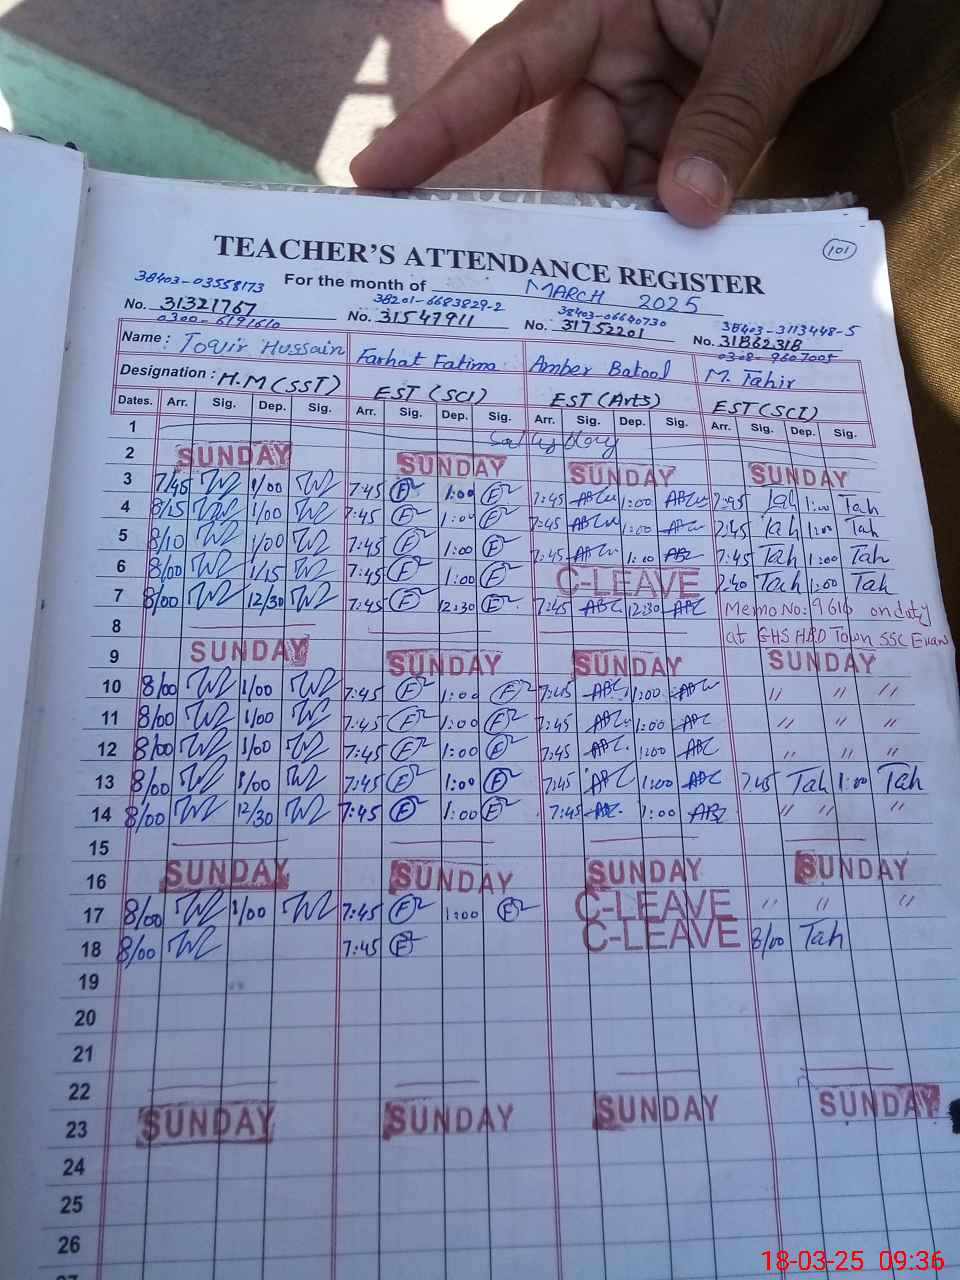 101
TEACHER'S ATTENDANCE REGISTER
For the month of MARCH 2025
38403-03558173 38201-6683829-2 38403-06640730 38403-3113448-5
No. 31321767 No. 31547911 No. 31752201 No. 31B6231B
0300-6191610 0308-9607005
Name: Farhat Fatima Amber Batool M. Tahir
Designation: H.M (SST) EST (SCI) EST (Arts) EST (SCI)
Dates. Arr. Sig. Dep. Sig. Arr. Sig. Dep. Sig. Arr. Sig. Dep. Sig. Arr. Sig. Dep. Sig.
1
2 SUNDAY SUNDAY SUNDAY SUNDAY
3 7/45 1/00 7:45 1:00 7:45 1:00 7:45 Tah 1:00 Tah
4 8/15 1/00 7:45 1:00 7:45 1:00 7:45 Tah 1:00 Tah
5 8/10 1/00 7:45 1:00 7:45 1:00 7:45 Tah 1:00 Tah
6 8/00 1/15 7:45 1:00 C-LEAVE 7:40 Tah 1:00 Tah
7 8/00 12/30 7:45 12:30 7:45 ABC 12:30 ABC Memo No: 9616 on duty
8 at GHS HBD Town SSC Exam
9 SUNDAY SUNDAY SUNDAY SUNDAY
10 8/00 1/00 7:45 1:00 7:45 1:00 " " "
11 8/00 1/00 7:45 1:00 7:45 ABC 1:00 ABC " " "
12 8/00 1/00 7:45 1:00 7:45 ABC 1:00 ABC " " "
13 8/00 1/00 7:45 1:00 7:45 ABC 1:00 ABC 7:45 Tah 1:00 Tah
14 8/00 12/30 7:45 1:00 7:45 ABC 1:00 ABC " " "
15
16 SUNDAY SUNDAY SUNDAY SUNDAY
17 8/00 1/00 7:45 1:00 C-LEAVE " " "
18 8/00 7:45 C-LEAVE 8/00 Tah
19
20
21
22
23 SUNDAY SUNDAY SUNDAY SUNDAY
24
25
26
18-03-25 09:36